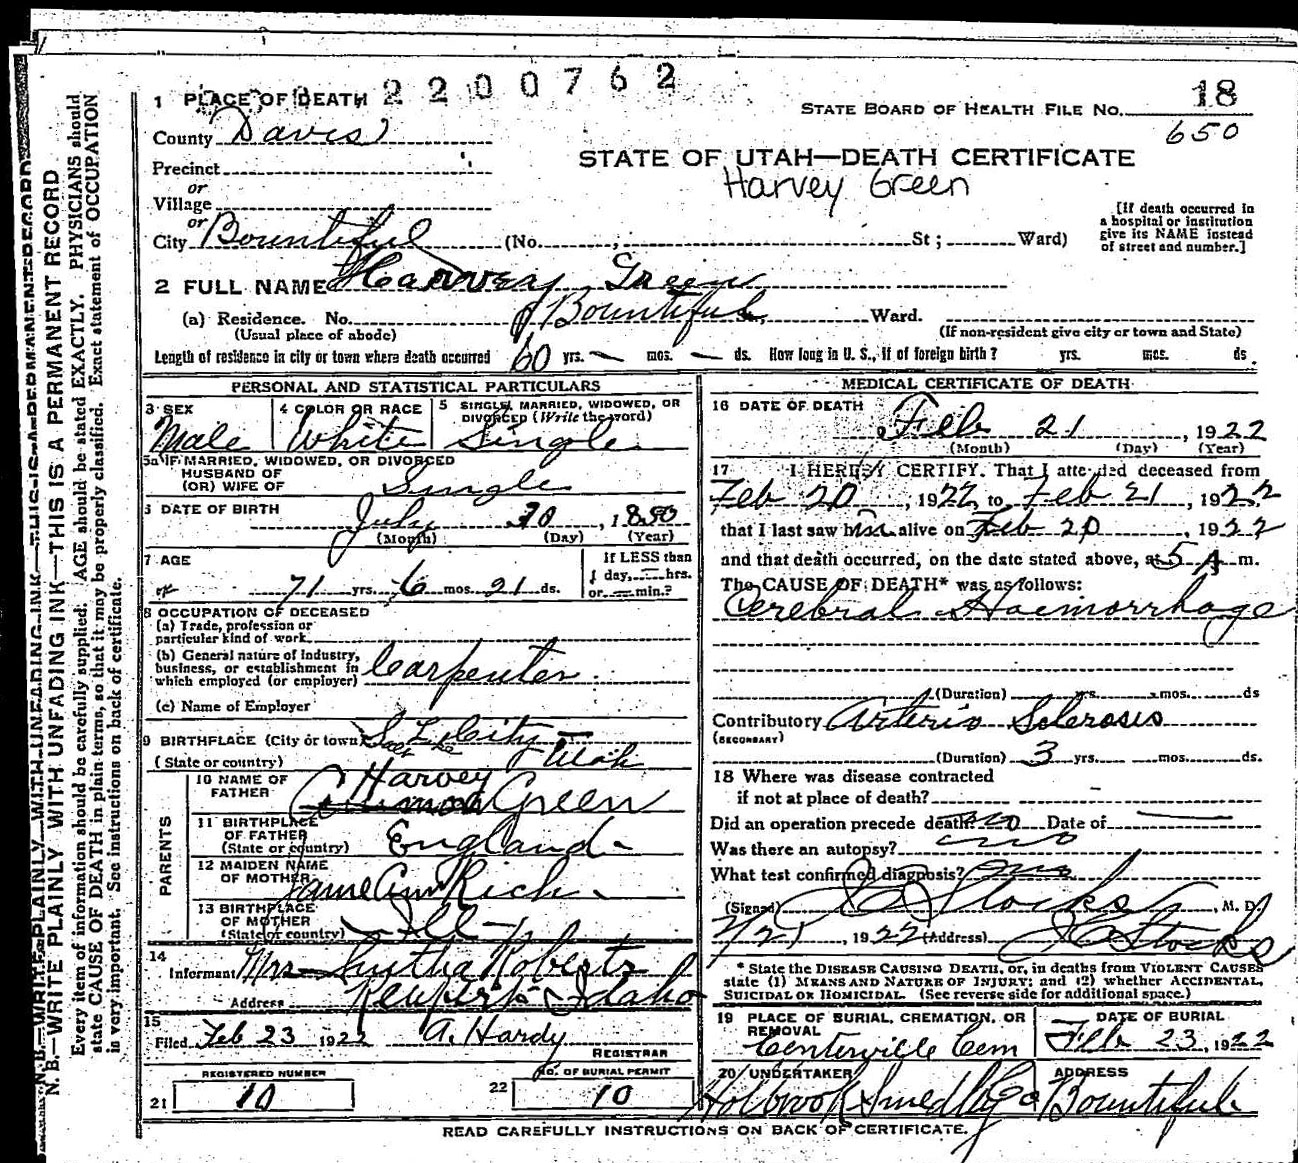 2200762
1 PLACE OF DEATH
STATE BOARD OF HEALTH FILE NO. 18
650
County Davis
STATE OF UTAH—DEATH CERTIFICATE
Harvey Green
Precinct
or
Village
or
City Bountiful (No. , St ; Ward)
[If death occurred in
a hospital or institution
give its NAME instead
of street and number.]
2 FULL NAME Harvey Green
(a) Residence. No. Bountiful St., Ward.
(Usual place of abode) (If non-resident give city or town and State)
Length of residence in city or town where death occurred 60 yrs. — mos. — ds. How long in U. S., if of foreign birth? yrs. mos. ds.
PERSONAL AND STATISTICAL PARTICULARS
3 SEX
Male
4 COLOR OR RACE
White
5 SINGLE, MARRIED, WIDOWED, OR
DIVORCED (Write the word)
Single
5a IF MARRIED, WIDOWED, OR DIVORCED
HUSBAND OF
(OR) WIFE OF Single
6 DATE OF BIRTH July 30, 1850
(Month) (Day) (Year)
7 AGE
71 yrs. 6 mos. 21 ds.
If LESS than
1 day, — hrs.
or — min.?
8 OCCUPATION OF DECEASED
(a) Trade, profession or
particular kind of work
(b) General nature of industry,
business, or establishment in
which employed (or employer) Carpenter
(c) Name of Employer
9 BIRTHPLACE (City or town) S L City
Salt Lake
(State or country) Utah
PARENTS
10 NAME OF
FATHER Harvey Green
11 BIRTHPLACE
OF FATHER
(State or country) England
12 MAIDEN NAME
OF MOTHER Jane Ann Rich
13 BIRTHPLACE
OF MOTHER
(State or country) Ill
14
Informant Mrs Roberts
Address Idaho
15
Filed Feb 23 1922 A. Hardy
REGISTRAR
REGISTERED NUMBER
21 10
NO. OF BURIAL PERMIT
22 10
MEDICAL CERTIFICATE OF DEATH
16 DATE OF DEATH
Feb 21, 1922
(Month) (Day) (Year)
17 I HEREBY CERTIFY. That I attended deceased from
Feb 20, 1922 to Feb 21, 1922
that I last saw him alive on Feb 20, 1922
and that death occurred, on the date stated above, at 5 A m.
The CAUSE OF DEATH* was as follows:
Cerebral Haemorrhage
(Duration) yrs. mos. ds
Contributory Arterio Sclerosis
(SECONDARY)
(Duration) 3 yrs. mos. ds.
18 Where was disease contracted
if not at place of death?
Did an operation precede death? no Date of —
Was there an autopsy? no
What test confirmed diagnosis? no
(Signed) J C Stocks, M. D.
2/21, 1922 (Address) J C Stocks
* State the DISEASE CAUSING DEATH, or, in deaths from VIOLENT CAUSES
state (1) MEANS AND NATURE OF INJURY; and (2) whether ACCIDENTAL,
SUICIDAL OR HOMICIDAL. (See reverse side for additional space.)
19 PLACE OF BURIAL, CREMATION, OR
REMOVAL
Centerville Cem
DATE OF BURIAL
Feb 23, 1922
20 UNDERTAKER
Holbrook Smedley Co
ADDRESS
Bountiful
READ CAREFULLY INSTRUCTIONS ON BACK OF CERTIFICATE.
N. B.—WRITE PLAINLY WITH UNFADING INK—THIS IS A PERMANENT RECORD
Every item of information should be carefully supplied. AGE should be stated EXACTLY. PHYSICIANS should
state CAUSE OF DEATH in plain terms, so that it may be properly classified. Exact statement of OCCUPATION
is very important. See instructions on back of certificate.